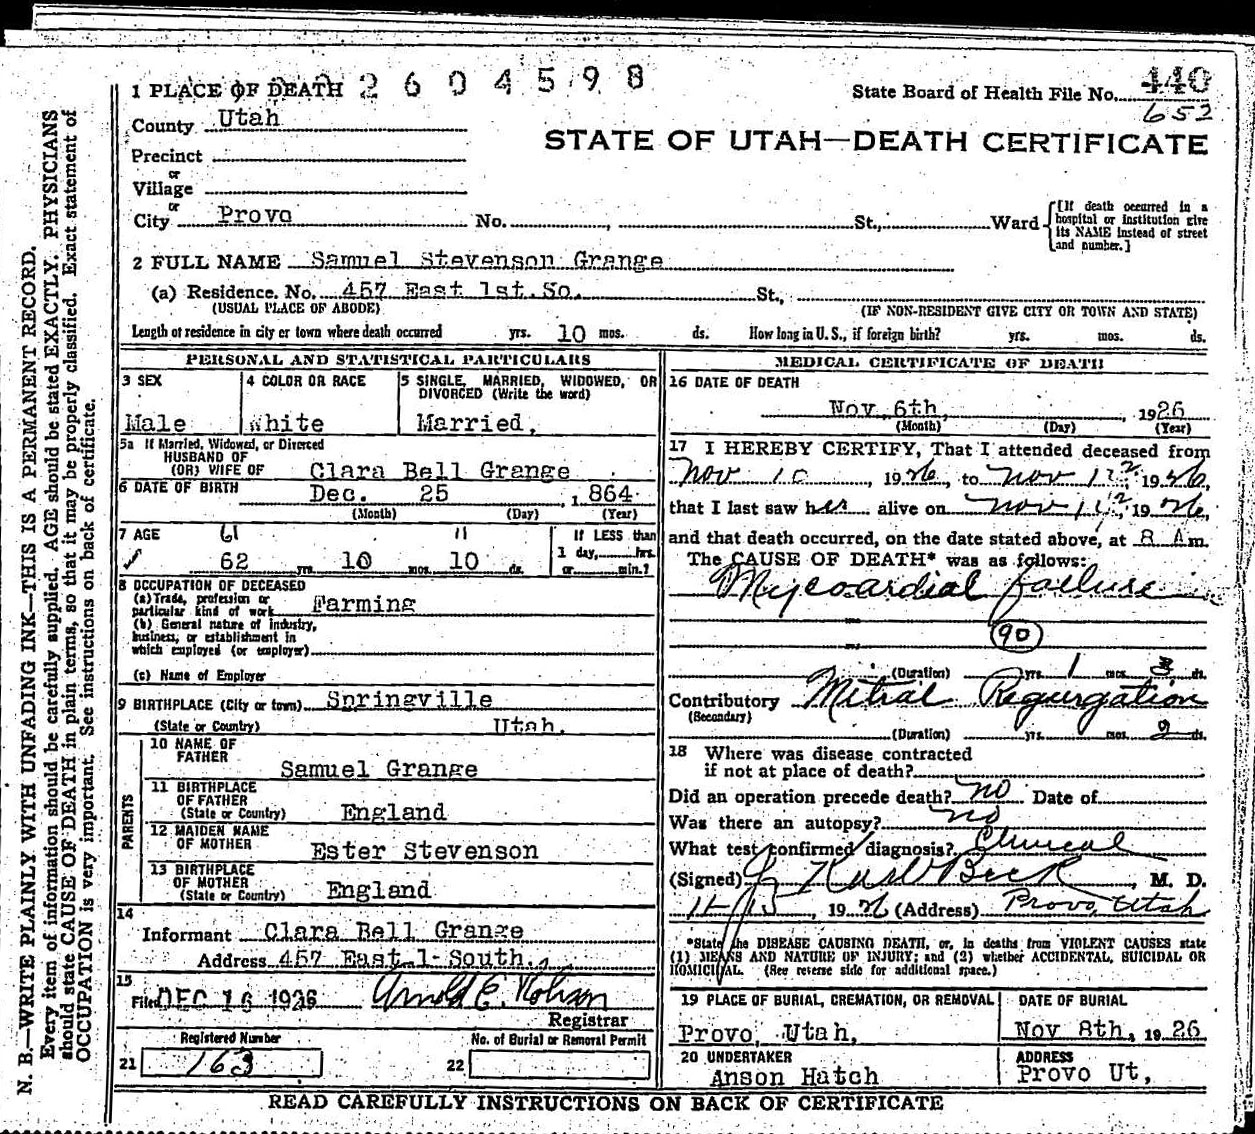 1 PLACE OF DEATH 2604598
State Board of Health File No. 440
652
County Utah
STATE OF UTAH—DEATH CERTIFICATE
Precinct
or
Village
or
City Provo No. , St., Ward
[If death occurred in a hospital or institution give its NAME instead of street and number.]
2 FULL NAME Samuel Stevenson Grange
(a) Residence. No. 457 East 1st. So. St.,
(USUAL PLACE OF ABODE) (IF NON-RESIDENT GIVE CITY OR TOWN AND STATE)
Length of residence in city or town where death occurred yrs. 10 mos. ds. How long in U. S., if foreign birth? yrs. mos. ds.
PERSONAL AND STATISTICAL PARTICULARS
3 SEX 4 COLOR OR RACE 5 SINGLE, MARRIED, WIDOWED, OR
DIVORCED (Write the word)
Male White Married,
5a If Married, Widowed, or Divorced
HUSBAND OF
(OR) WIFE OF Clara Bell Grange
6 DATE OF BIRTH Dec. 25 , 1864
(Month) (Day) (Year)
7 AGE 61 11 If LESS than
1 day, hrs.
62 yrs 10 mos. 10 ds. or min.?
8 OCCUPATION OF DECEASED
(a) Trade, profession or
particular kind of work Farming
(b) General nature of industry,
business, or establishment in
which employed (or employer)
(c) Name of Employer
9 BIRTHPLACE (City or town) Springville
(State or Country) Utah.
PARENTS
10 NAME OF
FATHER Samuel Grange
11 BIRTHPLACE
OF FATHER
(State or Country) England
12 MAIDEN NAME
OF MOTHER Ester Stevenson
13 BIRTHPLACE
OF MOTHER
(State or Country) England
14
Informant Clara Bell Grange
Address 457 East 1- South.
15
Filed DEC 16 1926
Registrar
Registered Number No. of Burial or Removal Permit
21 163 22
MEDICAL CERTIFICATE OF DEATH
16 DATE OF DEATH
Nov 6th, , 1926
(Month) (Day) (Year)
17 I HEREBY CERTIFY, That I attended deceased from
Nov 10, 1926, to Nov , 1926,
that I last saw her alive on Nov , 1926,
and that death occurred, on the date stated above, at 8 Am.
The CAUSE OF DEATH* was as follows:
Myocardial failure
90
(Duration) yrs. 1 mos. 3 ds.
Contributory Mitral Regurgation
(Secondary)
(Duration) yrs. mos. ds.
18 Where was disease contracted
if not at place of death?
Did an operation precede death? no Date of
Was there an autopsy? no
What test confirmed diagnosis? Clinical
(Signed) J Karl Beck, M. D.
11-15, 1926 (Address) Provo, Utah
*State the DISEASE CAUSING DEATH, or, in deaths from VIOLENT CAUSES state
(1) MEANS AND NATURE OF INJURY; and (2) whether ACCIDENTAL, SUICIDAL OR
HOMICIDAL. (See reverse side for additional space.)
19 PLACE OF BURIAL, CREMATION, OR REMOVAL DATE OF BURIAL
Provo, Utah, Nov 8th, 1926
20 UNDERTAKER ADDRESS
Anson Hatch Provo Ut,
READ CAREFULLY INSTRUCTIONS ON BACK OF CERTIFICATE
N. B.—WRITE PLAINLY WITH UNFADING INK—THIS IS A PERMANENT RECORD.
Every item of information should be carefully supplied. AGE should be stated EXACTLY. PHYSICIANS
should state CAUSE OF DEATH in plain terms, so that it may be properly classified. Exact statement of
OCCUPATION is very important. See instructions on back of certificate.